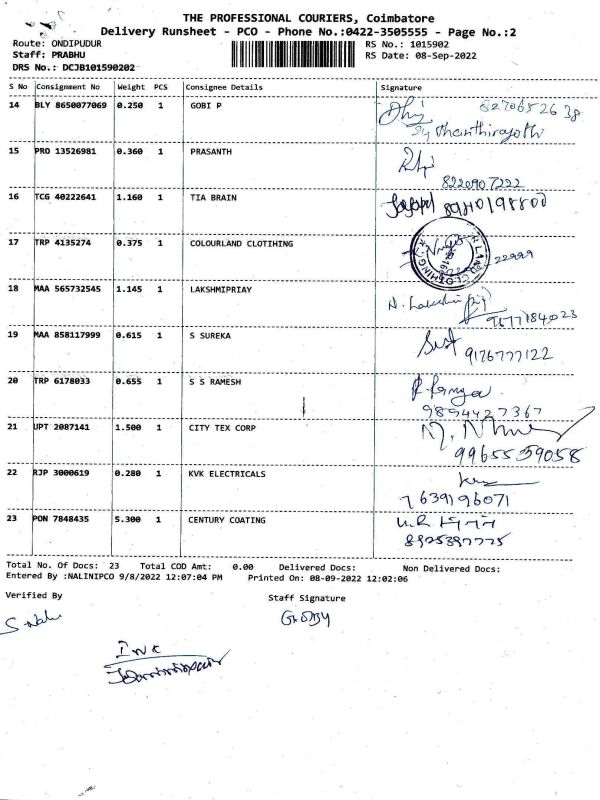 THE PROFESSIONAL COURIERS, Coimbatore
Delivery Runsheet - PCO - Phone No.:0422-3505555 - Page No.:2
Route: ONDIPUDUR
RS No.: 1015902
Staff: PRABHU
RS Date: 08-Sep-2022
DRS No.: DCJB101590202
S No Consignment No Weight PCS Consignee Details Signature
14 BLY 8650077069 0.250 1 GOBI P
8270652638
15 PRO 13526981 0.360 1 PRASANTH
8220907222
16 TCG 40222641 1.160 1 TIA BRAIN
17 TRP 4135274 0.375 1 COLOURLAND CLOTIHING
22999
18 MAA 565732545 1.145 1 LAKSHMIPRIAY
19 MAA 858117999 0.615 1 S SUREKA
9176777122
20 TRP 6178033 0.655 1 S S RAMESH
9894427367
21 UPT 2087141 1.500 1 CITY TEX CORP
9965559058
22 RJP 3000619 0.280 1 KVK ELECTRICALS
7639196071
23 PON 7848435 5.300 1 CENTURY COATING
Total No. Of Docs: 23 Total COD Amt: 0.00 Delivered Docs: Non Delivered Docs:
Entered By :NALINIPCO 9/8/2022 12:07:04 PM Printed On: 08-09-2022 12:02:06
Verified By Staff Signature